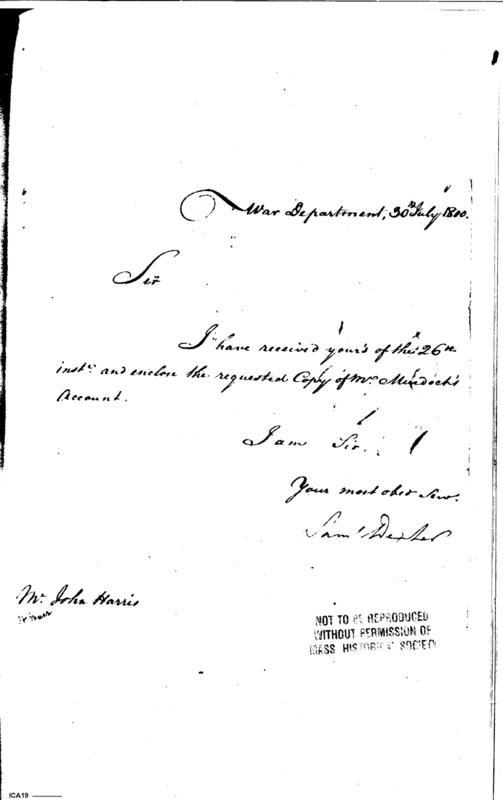 War Department, 30th July 1800.
Sir
I have received your's of the 26th
inst. and enclose the requested Copy of Mr Murdoch's
Account.
I am Sir.
Your most obed Serv.
Saml Dexter
Mr John Harris
NOT TO BE REPRODUCED
WITHOUT PERMISSION OF
MASS HISTORICAL SOCIETY
ICA19